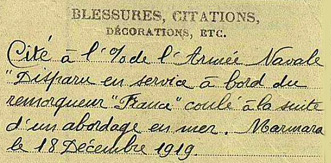 BLESSURES, CITATIONS,
DÉCORATIONS, ETC.
Cité à l'O/de l'Armée Navale
"Disparu en service à bord du
remorqueur "France" coulé à la suite
d'un abordage en mer. Marmara
le 18 Décembre 1919.